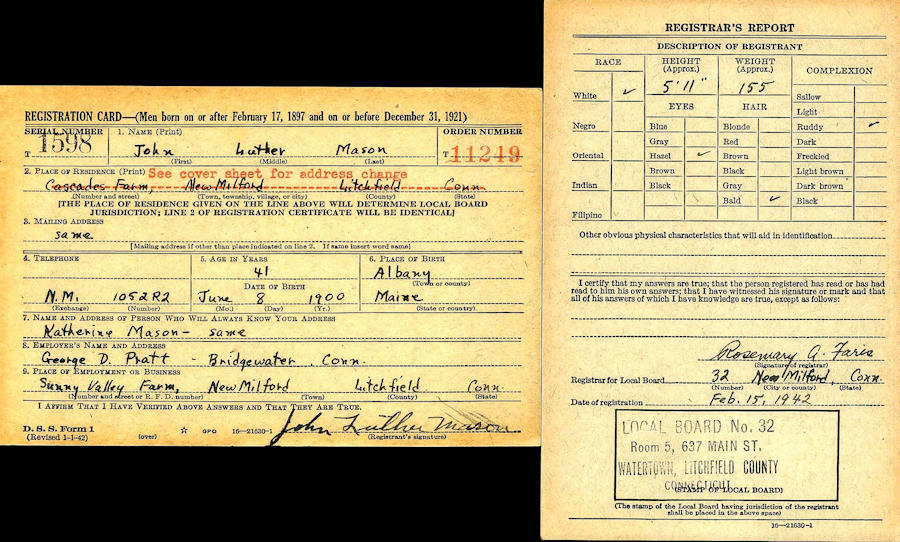 REGISTRATION CARD—(Men born on or after February 17, 1897 and on or before December 31, 1921)
SERIAL NUMBER
1. NAME (Print)
ORDER NUMBER
T 1598
John Luther Mason
T 11249
(First) (Middle) (Last)
2. PLACE OF RESIDENCE (Print) See cover sheet for address change
Cascades Farm, New Milford Litchfield Conn.
(Number and street) (Town, township, village, or city) (County) (State)
[THE PLACE OF RESIDENCE GIVEN ON THE LINE ABOVE WILL DETERMINE LOCAL BOARD
JURISDICTION; LINE 2 OF REGISTRATION CERTIFICATE WILL BE IDENTICAL]
3. MAILING ADDRESS
same
[Mailing address if other than place indicated on line 2. If same insert word same]
4. TELEPHONE
5. AGE IN YEARS
6. PLACE OF BIRTH
41
Albany
(Town or county)
DATE OF BIRTH
N.M. 1052R2
June 8 1900
Maine
(Exchange) (Number)
(Mo.) (Day) (Yr.)
(State or country)
7. NAME AND ADDRESS OF PERSON WHO WILL ALWAYS KNOW YOUR ADDRESS
Katherine Mason - same
8. EMPLOYER'S NAME AND ADDRESS
George D. Pratt - Bridgewater, Conn.
9. PLACE OF EMPLOYMENT OR BUSINESS
Sunny Valley Farm, New Milford Litchfield Conn.
(Number and street or R. F. D. number) (Town) (County) (State)
I AFFIRM THAT I HAVE VERIFIED ABOVE ANSWERS AND THAT THEY ARE TRUE.
D. S. S. Form 1
(Revised 1-1-42) (over) ☆ GPO 16—21630-1
John Luther Mason
(Registrant's signature)
REGISTRAR'S REPORT
DESCRIPTION OF REGISTRANT
RACE
HEIGHT
(Approx.)
WEIGHT
(Approx.)
COMPLEXION
White ✓
5'11"
155
Sallow
Light
EYES
HAIR
Negro
Blue
Blonde
Ruddy ✓
Gray
Red
Dark
Oriental
Hazel ✓
Brown
Freckled
Brown
Black
Light brown
Indian
Black
Gray
Dark brown
Bald ✓
Black
Filipino
Other obvious physical characteristics that will aid in identification
I certify that my answers are true; that the person registered has read or has had
read to him his own answers; that I have witnessed his signature or mark and that
all of his answers of which I have knowledge are true, except as follows:
Rosemary A. Faris
(Signature of registrar)
Registrar for Local Board 32 New Milford, Conn.
(Number) (City or county) (State)
Date of registration Feb. 15, 1942
LOCAL BOARD No. 32
Room 5, 637 MAIN ST.
WATERTOWN, LITCHFIELD COUNTY
CONNECTICUT
(STAMP OF LOCAL BOARD)
(The stamp of the Local Board having jurisdiction of the registrant
shall be placed in the above space)
16—21630-1